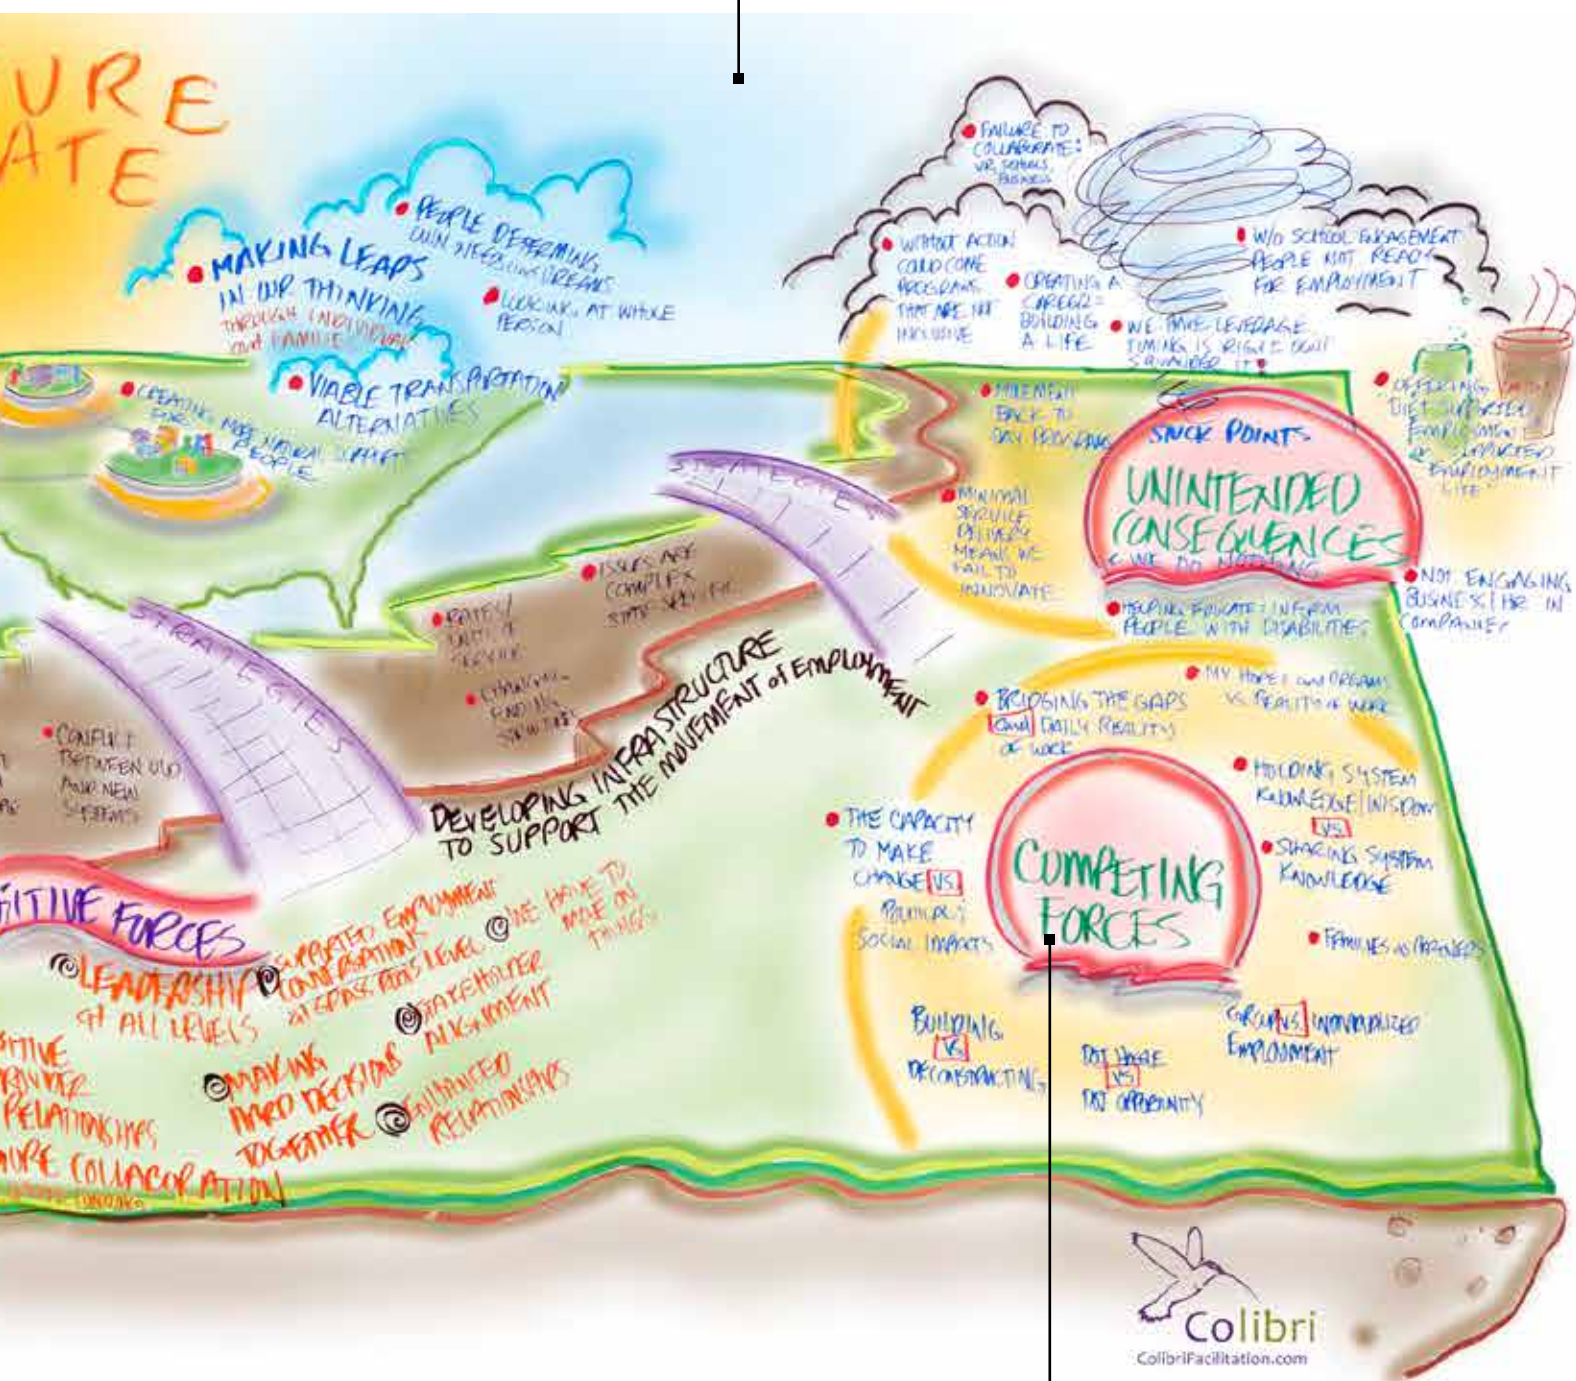 URE
ATE
MAKING LEAPS
IN OUR THINKING
THROUGH INDIVIDUAL
and FAMILIES
PEOPLE DETERMING
OWN NEEDS and DREAMS
LOOKING AT WHOLE
PERSON
VIABLE TRANSPORTATION
ALTERNATIVES
CREATING MORE NATURAL SUPPORTS
FOR PEOPLE
FAILURE TO
COLLABORATE:
VR, SCHOOLS,
BUSINESS
WITHOUT ACTION
COULD COME
PROGRAMS
THAT ARE NOT
INCLUSIVE
CREATING A
CAREER =
BUILDING
A LIFE
W/O SCHOOL ENGAGEMENT
PEOPLE NOT READY
FOR EMPLOYMENT
WE HAVE LEVERAGE
TIMING IS RIGHT DON'T
SQUANDER IT!
MOVEMENT
BACK TO
DAY PROGRAMS
STUCK POINTS
UNINTENDED
CONSEQUENCES
WE DO NOTHING
OFFERING
DIET SUPPORTED
EMPLOYMENT
SUPPORTED
EMPLOYMENT
LITE"
MINIMAL
SERVICE
DELIVERY
MEANS WE
FAIL TO
INNOVATE
NOT ENGAGING
BUSINESS/HR IN
COMPANIES
HELPING EDUCATE/INFORM
PEOPLE WITH DISABILITIES
STRATEGIES
STRATEGIES
ISSUES ARE
COMPLEX
STATE SPECIFIC
RATES/
UNIT OF
SERVICE
CHANGING
FUNDING
STRUCTURES
CONFLICT
BETWEEN OLD
AND NEW
SYSTEMS
DEVELOPING INFRASTRUCTURE
TO SUPPORT THE MOVEMENT of EMPLOYMENT
BRIDGING THE GAPS
and DAILY REALITY
OF WORK
MY HOPES and DREAMS
VS REALITY of WORK
HOLDING SYSTEM
KNOWLEDGE/WISDOM
VS.
SHARING SYSTEM
KNOWLEDGE
THE CAPACITY
TO MAKE
CHANGE VS.
POLITICAL/
SOCIAL IMPACTS
COMPETING
FORCES
FAMILIES as PARTNERS
BUILDING
VS
DECONSTRUCTING
GROUP VS. INDIVIDUALIZED
EMPLOYMENT
DOJ HASSLE
VS
DOJ OPPORTUNITY
SITIVE FORCES
LEADERSHIP
at ALL LEVELS
SUPPORTED EMPLOYMENT
CONVERSATIONS
at GRASS ROOTS LEVEL
WE HAVE TO
MOVE ON
THINGS
STAKEHOLDER
ALIGNMENT
MAKING
HARD DECISIONS
TOGETHER
ENHANCED
RELATIONSHIPS
SITIVE
RELATIONSHIPS
COLLABORATION
Colibri
ColibriFacilitation.com